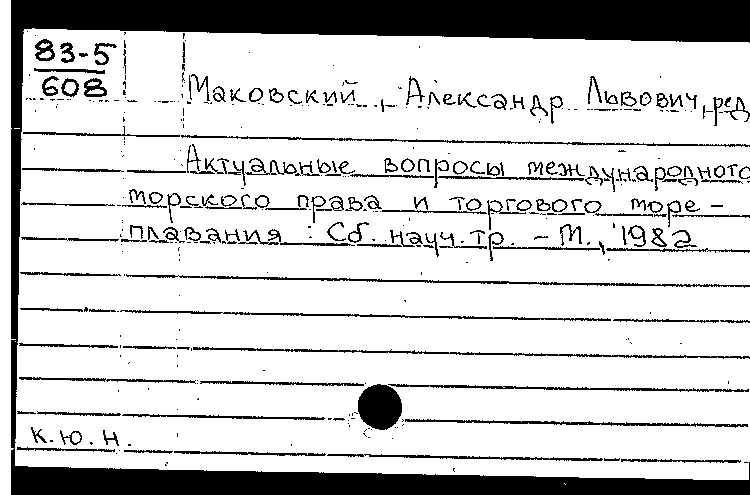 83-5
608
Маковский, Александр Львович, ред
Актуальные вопросы международного
морского права и торгового море-
плавания : Сб. науч. тр. - М., 1982
К.Ю.Н.